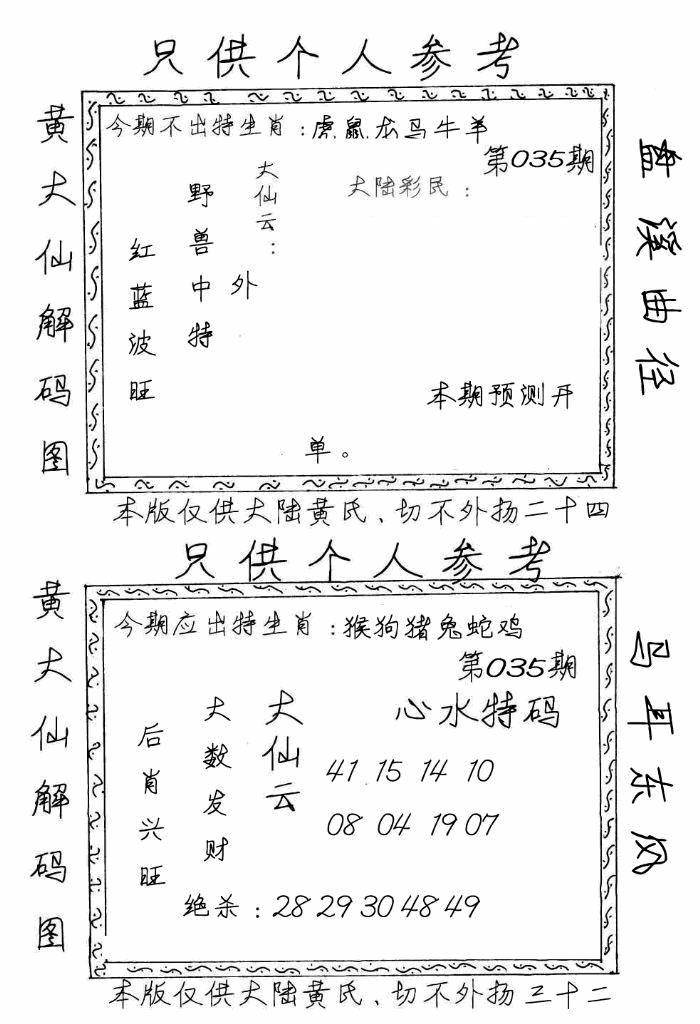 只供个人参考
黄大仙解码图
今期不出特生肖：虎鼠龙马牛羊
第035期
大陆彩民：
大仙云：
野兽中特
外
红蓝波旺
本期预测开
单。
盘溪曲径
本版仅供大陆黄氏、切不外扬二十四
只供个人参考
黄大仙解码图
今期应出特生肖：猴狗猪兔蛇鸡
第035期
心水特码
大仙云
大数发财
后肖兴旺
41 15 14 10
08 04 19 07
绝杀：28 29 30 48 49
马耳东风
本版仅供大陆黄氏、切不外扬三十二